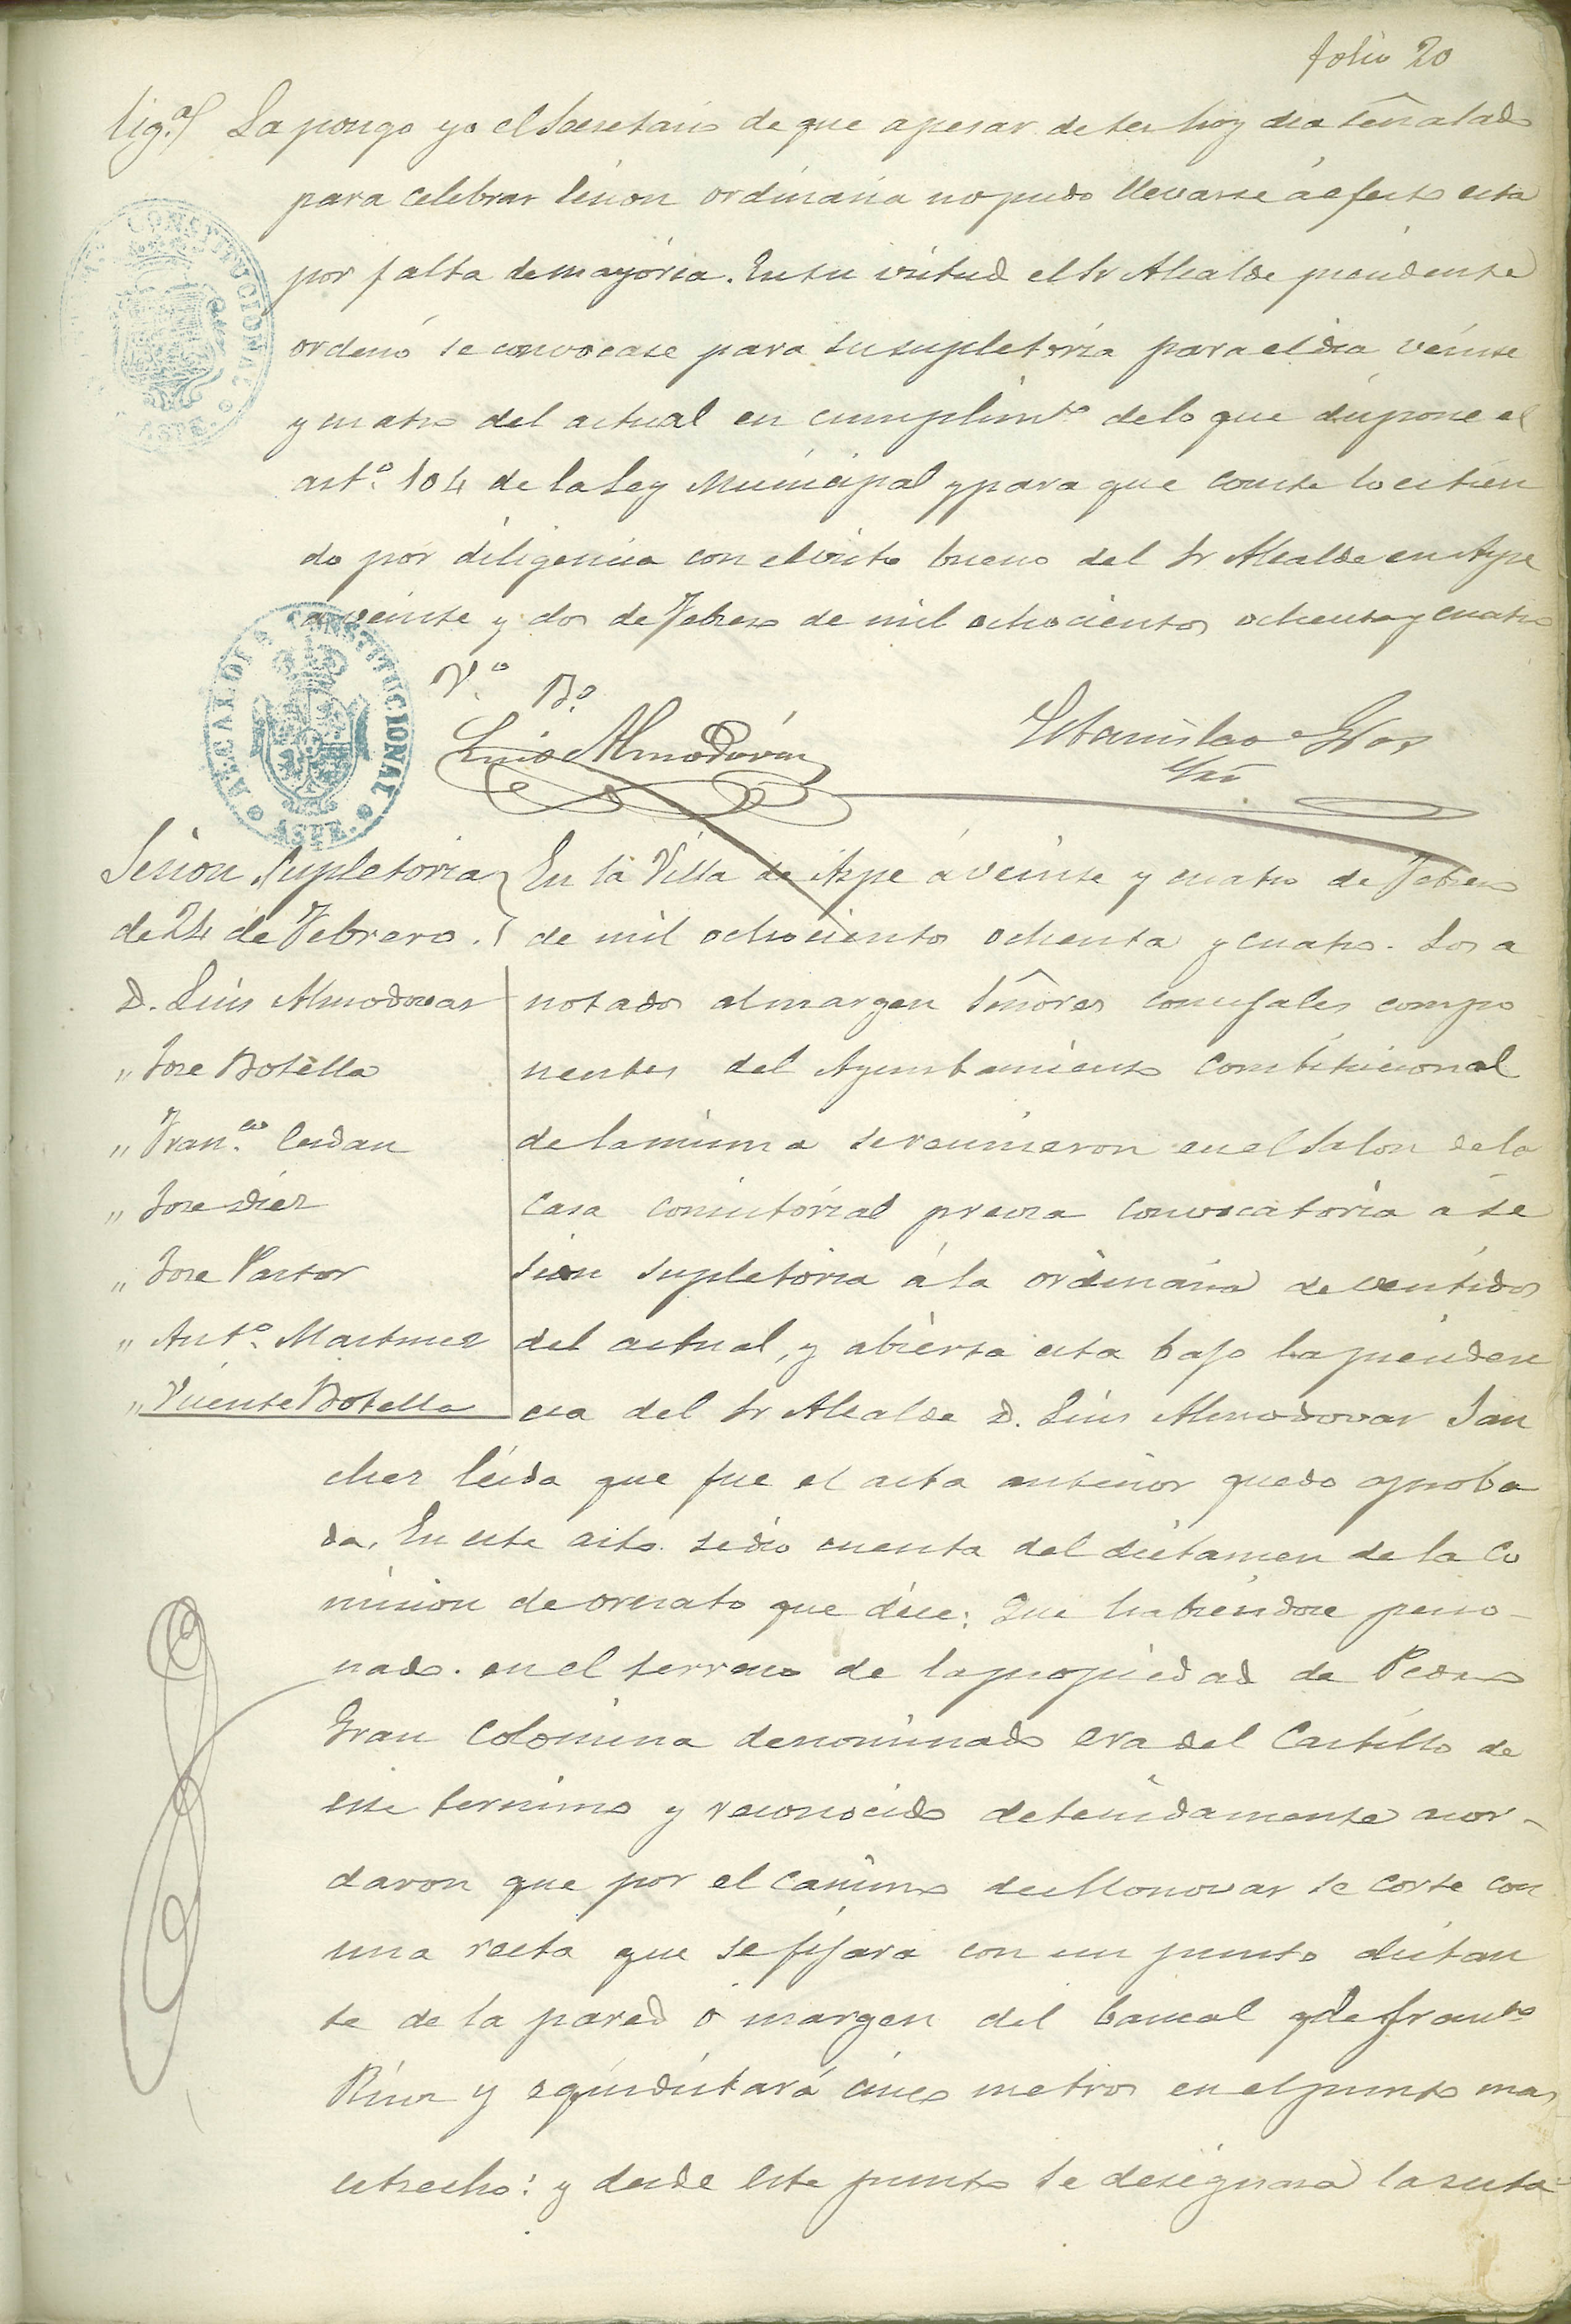 Folio 20
Lig.ª) La pongo yo el Secretario de que apesar de ser hoy dia señalado
para celebrar sesion ordinaria no pudo llevarse á efecto esta
por falta de mayoria. En su virtud el Sr Alcalde presidente
ordenó se convocase para su supletoria para el dia veinte
y cuatro del actual en cumplimto de lo que dispone el
artº. 104 de la Ley Municipal y para que conste lo estien
do por diligencia con el visto bueno del Sr Alcalde en Aspe
a veinte y dos de Febrero de mil ochocientos ochenta y cuatro
ALCALDIA CONSTITUCIONAL
ASPE
V.º B.º
Luis Almodóvar
Estanislao
Srio
Sesion supletoria
de 24 de Febrero.
D. Luis Almodovar
" Jose Botella
" Fran.co Cerdan
" Jose Diez
" Jose Pastor
" Antº. Martinez
" Vicente Botella
En la Villa de Aspe á veinte y cuatro de Febrero
de mil ochociento ochenta y cuatro. Los a
notados al margen Señores concejales compo
nentes del Ayuntamiento Constitucional
de la misma se reunieron en el Salon de la
Casa consistorial previa convocatoria á se
sion supletoria á la ordinaria de ventidos
del actual, y abierta esta bajo la presiden
cia del Sr Alcalde D. Luis Almodovar San
chez leida que fue el acta anterior quedo aproba
da. En este acto se dio cuenta del dictamen de la Co
mision de ornato que dice: Que habiendose perso-
nado en el terreno de la propiedad de Pedro
Gran Colomina denominado era del Castillo de
este termino y reconocido detenidamente acor-
daron que por el camino de Monovar se corte con
una recta que se fijara con un punto distan
te de la pared o margen del bancal de
y equidistará cinco metros en el punto mas
estrecho: y desde este punto se designara la recta